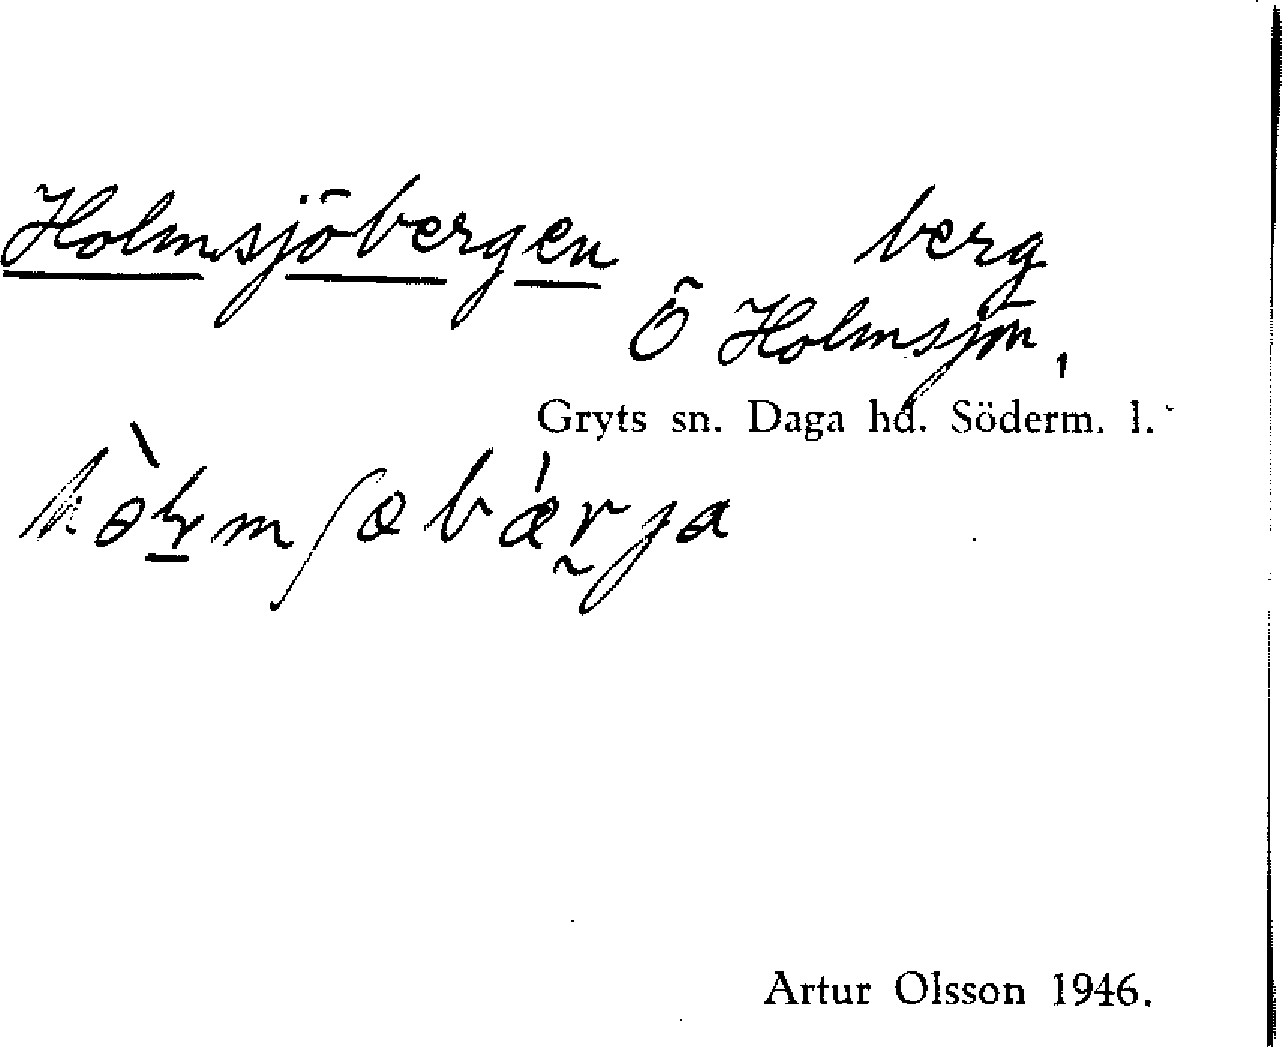 Holmsjöbergen berg
Ö Holmsjön,
Gryts sn. Daga hd. Söderm. l.
Artur Olsson 1946.